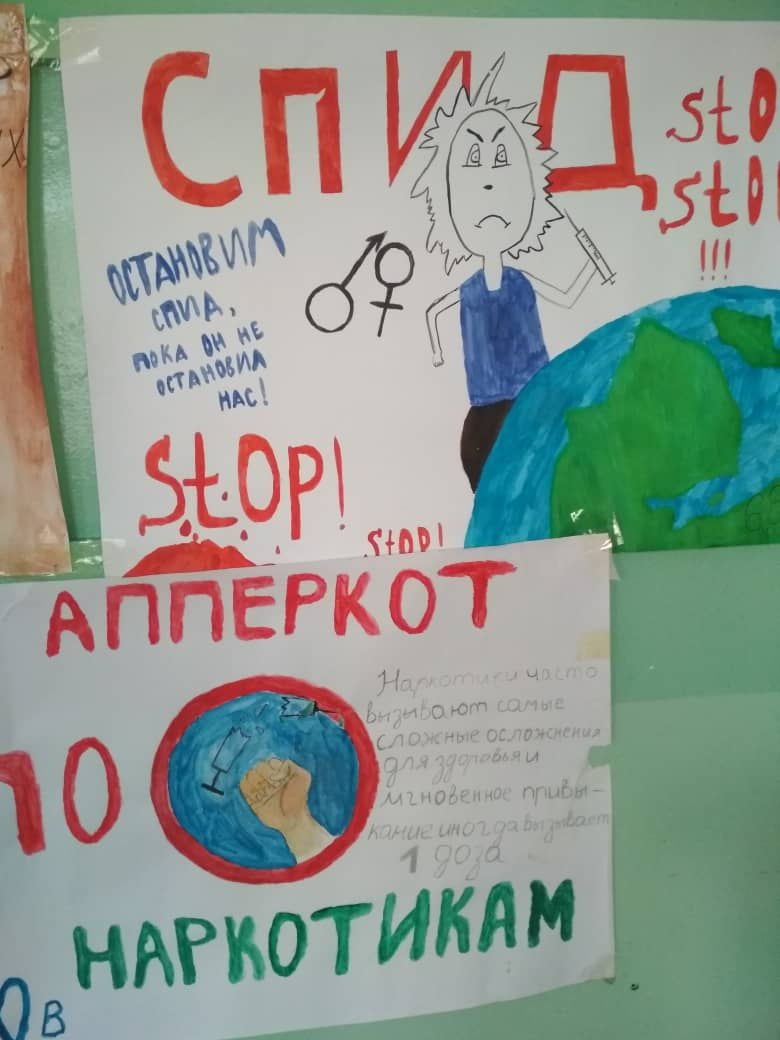 СПИД
stO
stO
!!!
ОСТАНОВИМ
СПИД,
ПОКА ОН НЕ
ОСТАНОВИЛ
НАС!
StOP!
StOP!
АППЕРКОТ
ПО
Наркотики часто
вызывают самые
сложные осложнения
для здоровья и
мгновенное привы-
кание иногда вызывает
1 доза
НАРКОТИКАМ
В